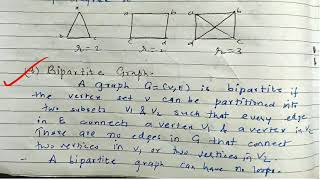 a
b
a
b
c
d
c
r = 2
r = 2
r = 3
(3) Bipartite Graph-
A graph G = (V, E) is bipartite if
the vertex set v can be partitioned into
two subsets V1 & V2 such that every edge
in E connects a vertex V1 & a vertex in V2
There are no edges in G that connect
two vertices in V1 or two vertices in V2.
- A bipartite graph can have no loops.